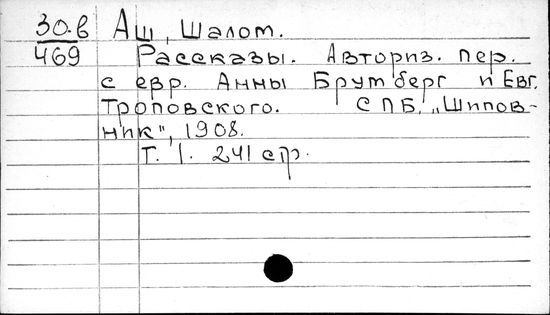 30.в Аш, Шалом.
469 Рассказы. Авториз. пер.
с евр. Анны Брумберг и Евг.
Троповского. СПБ, „Шипов-
ник", 1908.
Т. 1. 241 стр.